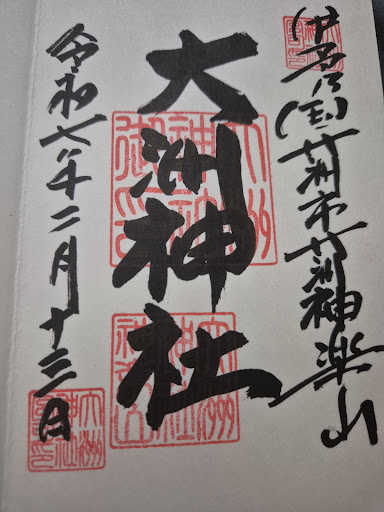 伊予乃国大洲市大洲神楽山
大洲神社
令和七年二月十三日